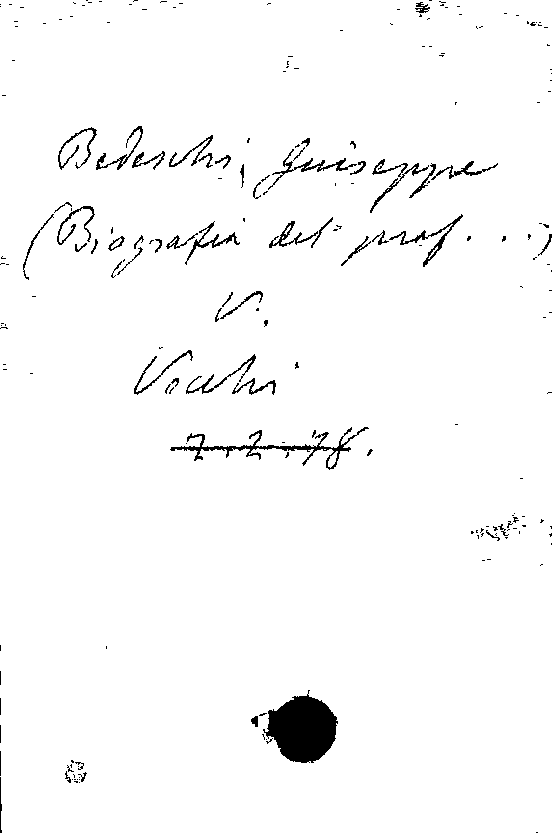 Bedeschi, Guiseppe
(Biografia del prof. ...)
V.
Vecchi
7.2.78.